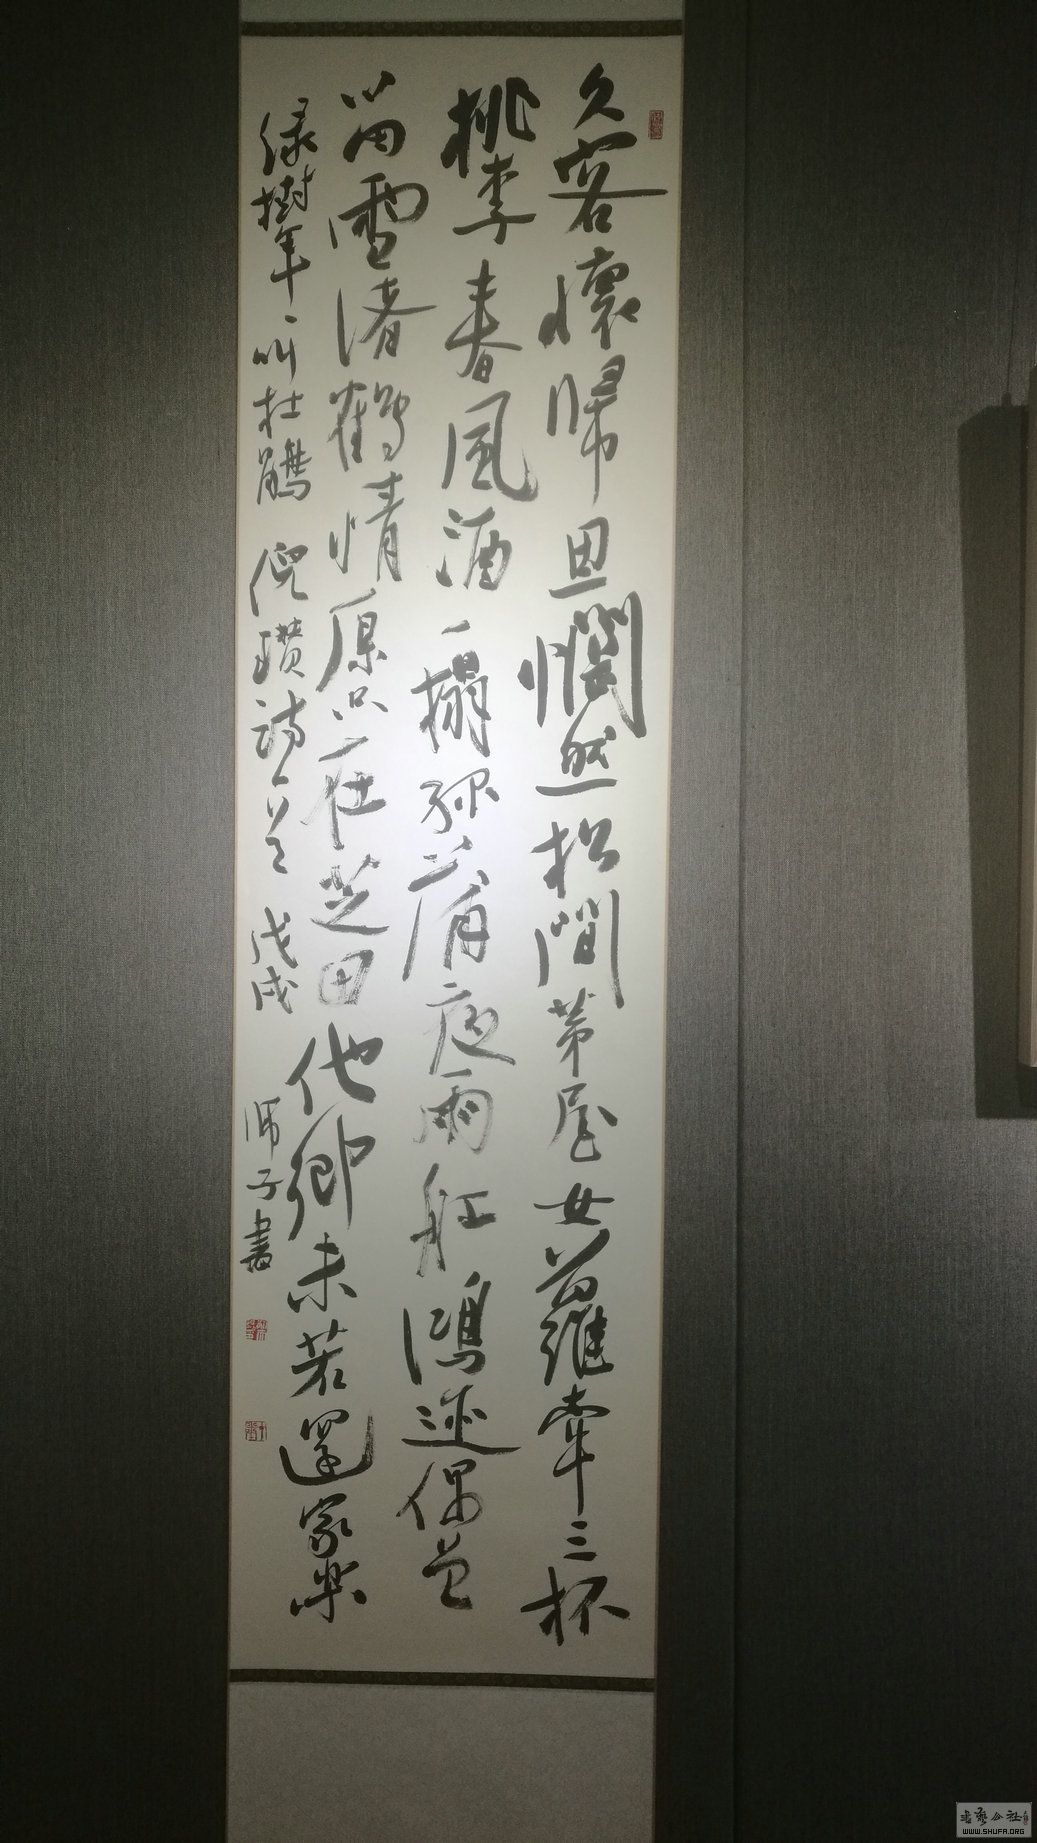 久客懷歸思惘然松間茅屋女蘿牽三杯
桃李春風酒一榻菰蒲夜雨船鴻迹偶曾
留雪渚鶴情原只在芝田他鄉未若還家樂
绿樹年〻叫杜鵑 倪瓚詩一首 戊戌 师子書
書藝公社
WWW.SHUFA.ORG